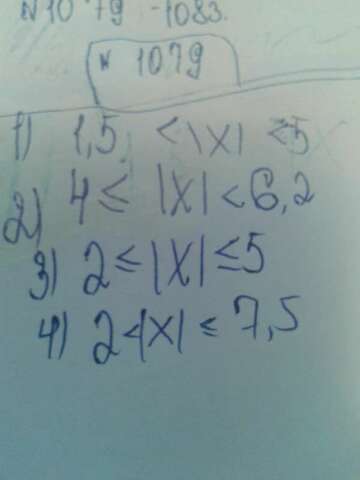 N 10 79 -1083.
N 1079
1) 1,5 < |X| ≤ 5
2) 4 ≤ |X| < 6,2
3) 2 ≤ |X| ≤ 5
4) 2 < |X| ≤ 7,5